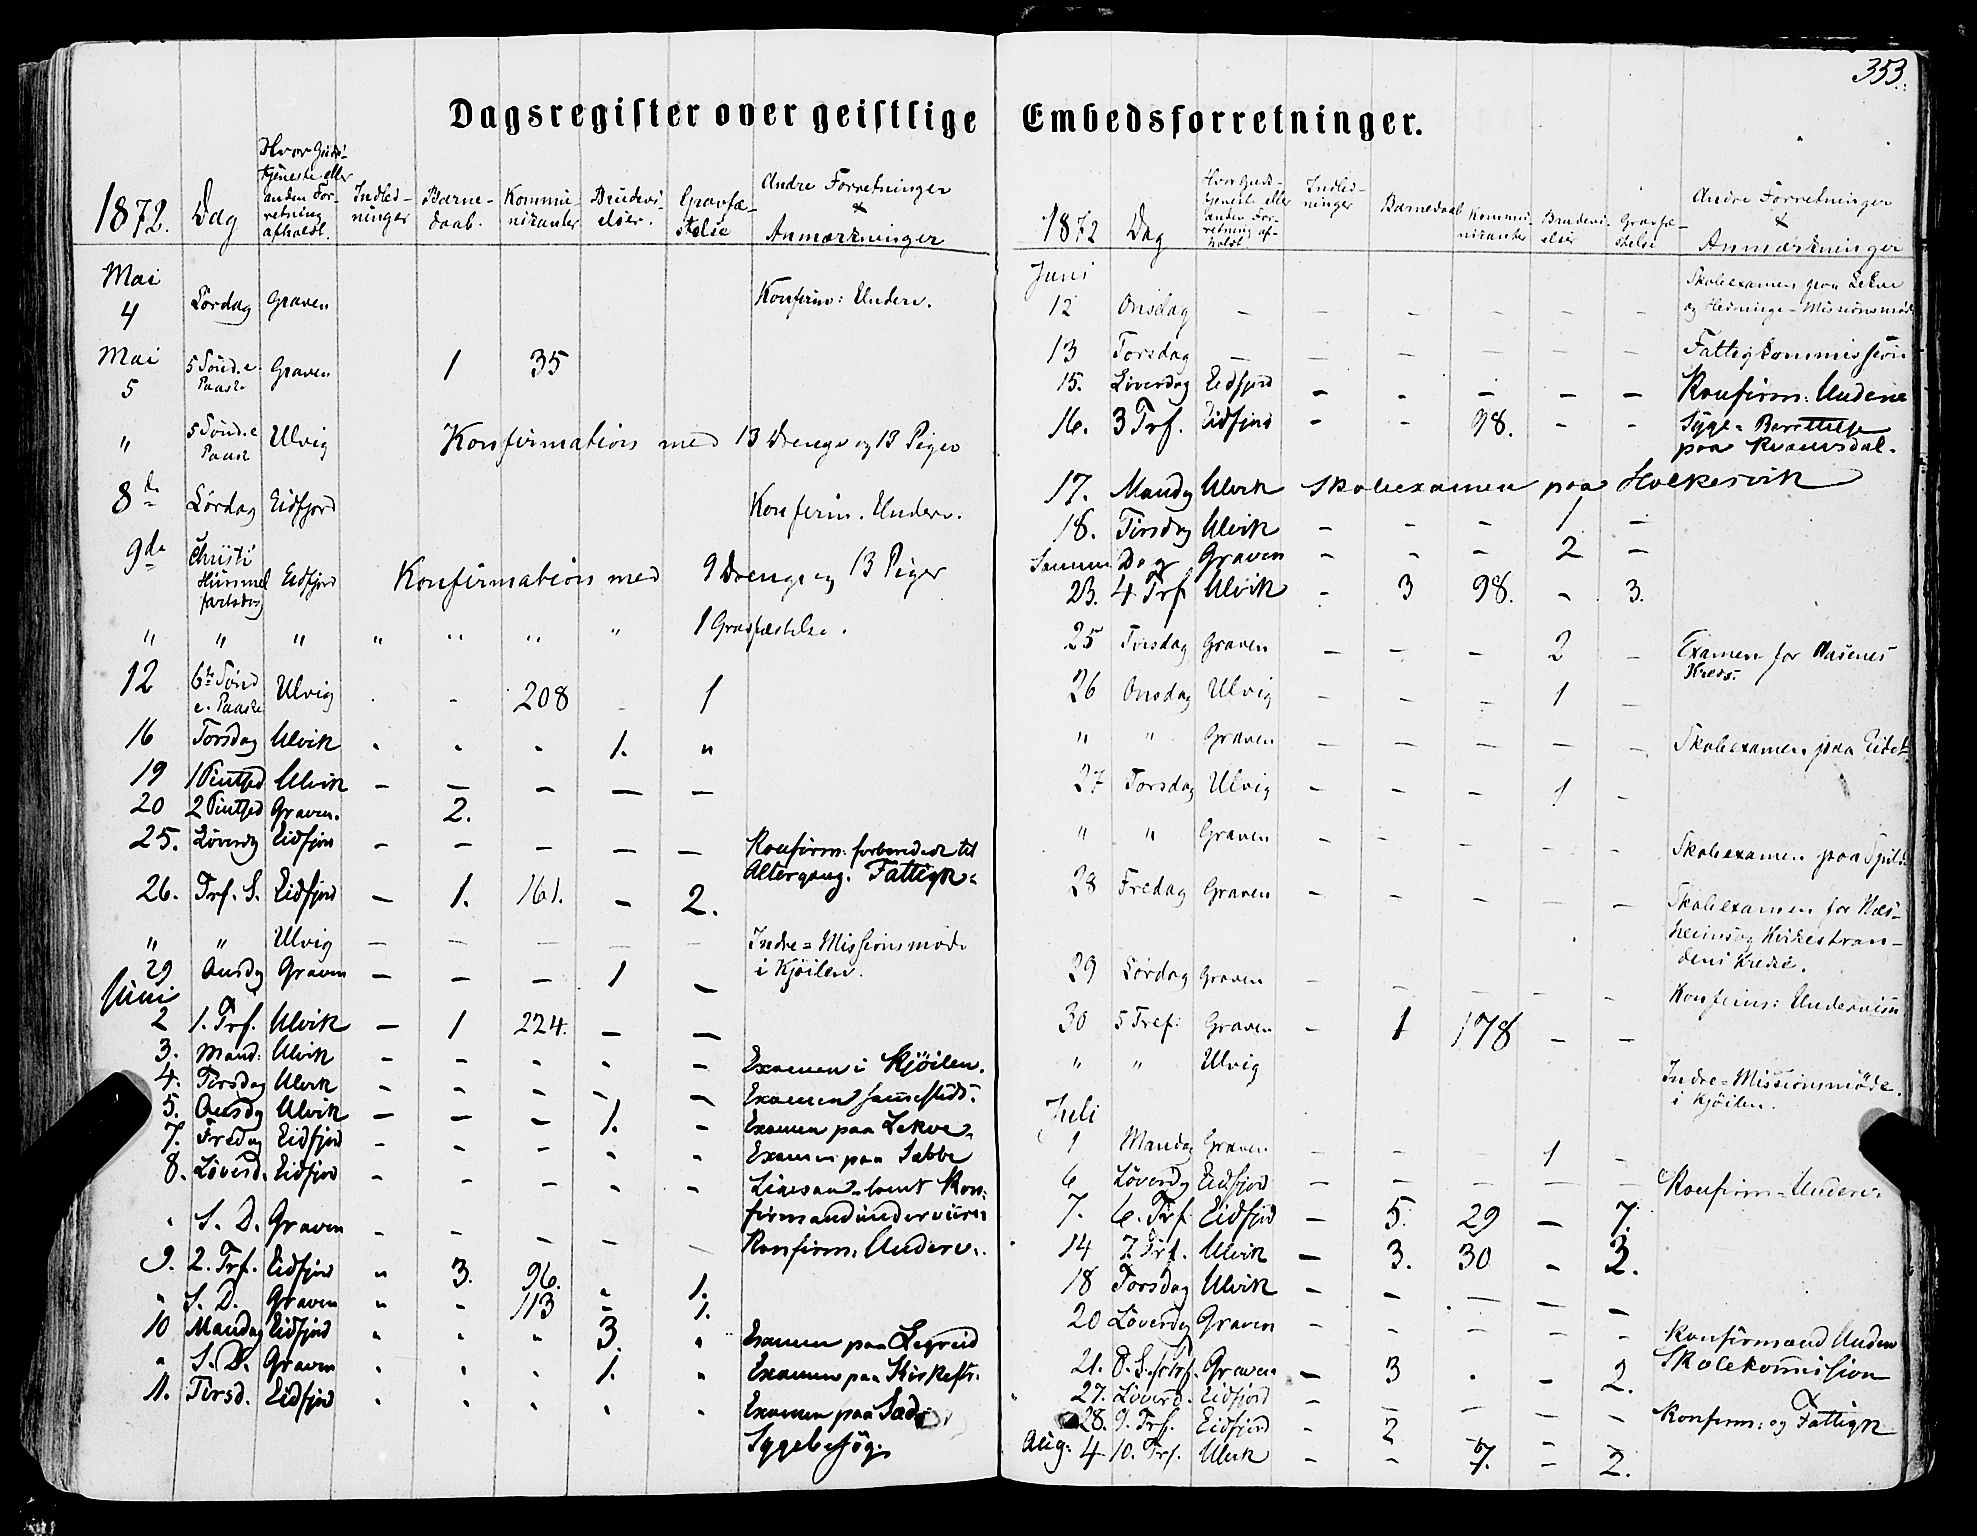 353.
Dagsregister over geistlige Embedsforretninger.
1872. Dag Hvor Guds- tjeneste eller anden For- retning afholdt. Indled- ninger Barne- daab. Kommu- nikanter Brudevi- elser. Gravfæ- stelse Andre Forretninger & Anmærkninger
Mai
4 Lørdag Graven Konfirm: Underv.
Mai
5 5 Sønd. e. Paaske Graven 1 35
" 5 Sønd. e Paask Ulvig Konfirmation med 13 Drenge og 13 Piger
8de Lørdag Eidfjord Konfirm. Underv.
9de Christi Himmel fartsdag Eidfjord Konfirmation med 9 Drenge og 13 Piger
" " " " " " " 1 Gravfæstelse.
12 6te Sønd e. Paaske Ulvig . - 208 - 1
16 Torsdag Ulvik . . . 1. "
19 1 Pintsed Ulvik - - - - -
20 2 Pintsed Graven. 2.
25. Løverdg Eidfjord - - - - - Konfirm: forberedede til
Altergang. Fattigk:
26. Trf. S. Eidfjord - 1. 161. - 2.
" " Ulvig - - - - - Indre=Missionsmøde
i Kjöilen.
29 Onsdg Graven - - - 1 -
Juni
2 1. Trf. Ulvik - 1 224. - -
3. Mand: Ulvik - - - - - Examen i Kjöilen.
4. Tirsdag Ulvik - - - - - Examen sammesteds.
5. Onsdg Ulvik - - - 1. - Examen paa Lekve.
7. Fredag Eidfjord - - - - - Examen paa Sæbbe
8. Løverd. Eidfjord - - - - - Kon:
firmandunderviisn
" S. D. Graven - - - - - Konfirm: Underv:
9. 2. Trf. Eidfjord " 3. 96. " 1.
" S. D. Graven " - 113 - 1.
10 Mandag Eidfjord " . " 3. " Examen paa Legreid
" S. D. Graven . . . 1. " Examen paa Kirkestr.
11. Tirsd. Eidfjord . . . . . Examen paa Sæd
Sygebesøg.
1872 Dag Hvor Guds- tjeneste eller anden For- retning af- holdt Indled- ninger Barnedaab Kommu- nikanter Brudevi- elser Gravfæ- stelse Andre Forretninger & Anmærkninger
Juni
12 Onsdag - - - - - - Skoleexamen paa Lekve
og Hedninge-Missionsmøde
13 Torsdag - - - - - - Fattigkommission
15. Løverdag Eidfjord - - - - - Konfirm: Underv
16. 3 Trf. Eidfjord - - 98. - - Syge=Berettelse
paa
17. Mandg Ulvik Skoleexamen paa Holkesvik
18. Tirsdag Ulvik - - - 1 -
Samme Dag Graven - - - 2 -
23. 4 Trf Ulvik - 3 98. - 3.
25 Tirsdag Graven - - - 2 - Examen for Næsenes
Kreds.
26 Onsdag Ulvig - - - 1 -
" " Graven - - - - - Skoleexamen paa Eidet
27 Torsdag Ulvig - - - 1 -
" " Graven - - - - - Skoleexamen paa Spilde
28 Fredag Graven - - - - - Skoleexamen for Næs-
heims og Kirkestran-
dens Kredse.
29 Lørdag Graven - - - - - Konfirm: Underviisn
30 5 Tref: Graven - 1 178 - -
" " Ulvig Indre=Missionsmöde.
i Kjöilen.
Juli
1 Mandag Graven - - - 1 -
6 Løverdg Eidfjord - - - - - Konfirm=Underv:
7. 6. Trf Eidfjord - 5. 29 - 7.
14 7 Trf. Ulvik - 3. 30 - 2.
18 Torsdag Ulvik - - - - -
20 Løverdg Graven - - - - - Konfirmand Underv
Skolekommission
21. 8. S. f. Trf. Graven - 3 . - 2.
27. Løverd. Eidfjord - - - - - Konfirm: og Fattigk
28. 9. Trf. Eidfjord - 2 - - -
Aug: 4 10. Trf. Ulvik - - 7. - 2.